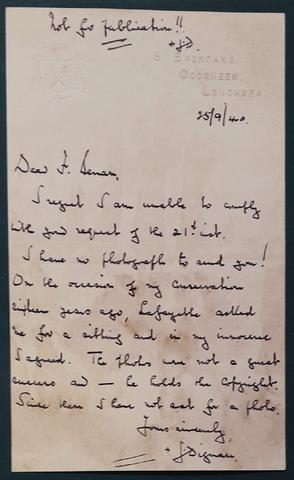 Not for Publication!!
+ J.D.
St BRENDAN'S,
COORHEEN,
LOUGHREA.
25/9/40.
Dear F. Senan,
I regret I am unable to comply
with your request of the 21st inst.
I have no photograph to send you!
On the occasion of my Consecration
sixteen years ago, Lafayette asked
me for a sitting and in my innocence
I agreed. The photos were not a great
success and — he holds the Copyright.
Since then I have not sat for a photo.
Yours sincerely,
+ J. Dignan.